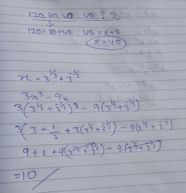 120 80 40 45 ? 5
120 = 80+40 45 = x+5
x = 40
x = 3^{1/3} + 3^{-1/3}
3x³ - 9x
3(3^{1/3} + 3^{-1/3})³ - 9(3^{1/3} + 3^{-1/3})
3(3 + 1/3 + 3(3^{1/3} + 3^{-1/3})) - 9(3^{1/3} + 3^{-1/3})
9 + 1 + 9(3^{1/3} + 3^{-1/3}) - 9(3^{1/3} + 3^{-1/3})
= 10